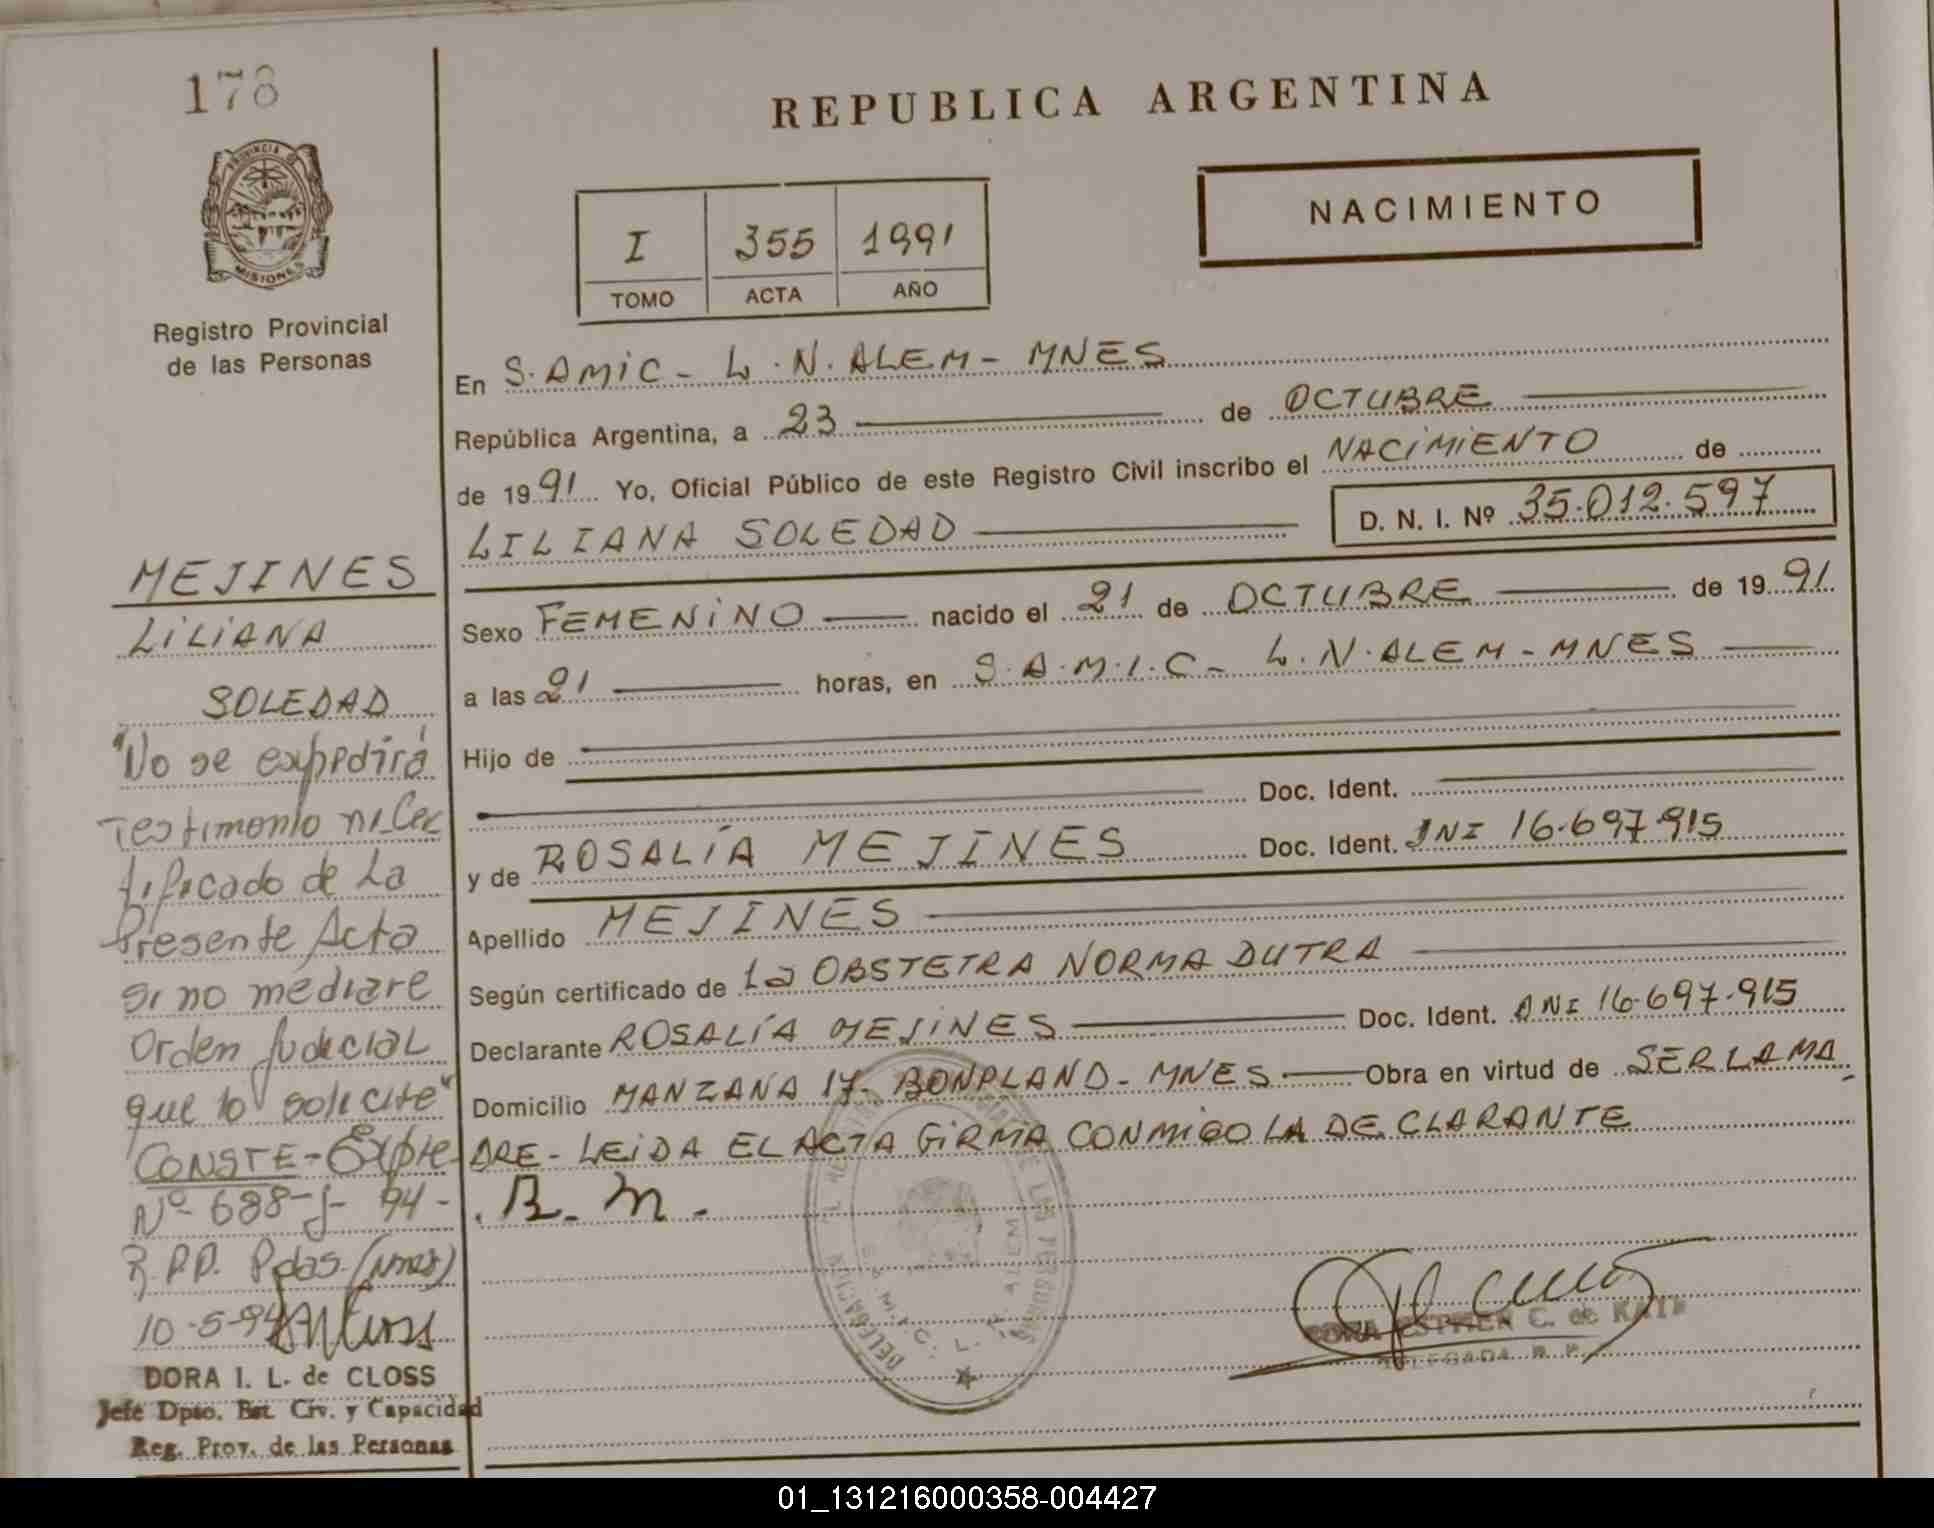 178
PROVINCIA DE
MISIONES
Registro Provincial
de las Personas
MEJINES
LILIANA
SOLEDAD
"No se expedirá
Testimonio ni Cer
tificado de La
Presente Acta
si no mediare
Orden Judicial
que lo solicite"
CONSTE - Expte
Nº 688-J- 94-
R.P.P. Pdas. (Mnes)
10-5-94
DORA I. L. de CLOSS
Jefe Dpto. Est. Civ. y Capacidad
Reg. Prov. de las Personas
REPUBLICA ARGENTINA
I 355 1991
TOMO ACTA AÑO
NACIMIENTO
En S.AMIC - L.N.ALEM - MNES
República Argentina, a 23 de OCTUBRE
de 1991 Yo, Oficial Público de este Registro Civil inscribo el NACIMIENTO de
LILIANA SOLEDAD D. N. I. Nº 35.012.597
Sexo FEMENINO nacido el 21 de OCTUBRE de 1991
a las 21 horas, en S.A.M.I.C - L.N.ALEM - MNES
Hijo de
Doc. Ident.
y de ROSALÍA MEJINES Doc. Ident. DNI 16.697.915
Apellido MEJINES
Según certificado de La OBSTETRA NORMA DUTRA
Declarante ROSALÍA MEJINES Doc. Ident. DNI 16.697.915
Domicilio MANZANA 17- BONPLAND - MNES Obra en virtud de SER LA MA
DRE - LEIDA EL ACTA FIRMA CONMIGO LA DECLARANTE
R. M.
DELEGACION DE LAS PERSONAS
S.A.M.I.C. L. N. ALEM
DORA ESTHER C. de KATZ
DELEGADA R. P.
01_131216000358-004427